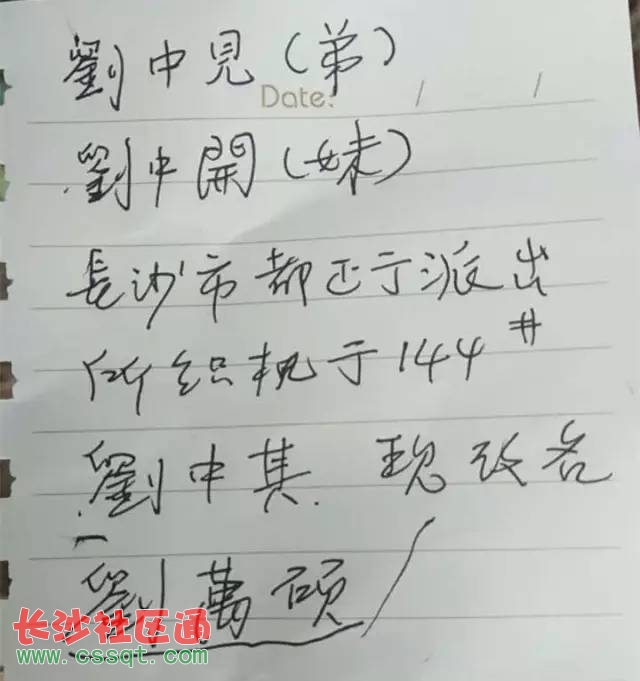 劉中見（弟）
Date: / /
劉中開（妹）
長沙市都正于派出
所织机于144#
劉中其 现改名
劉萬碩
长沙社区通
www.cssqt.com